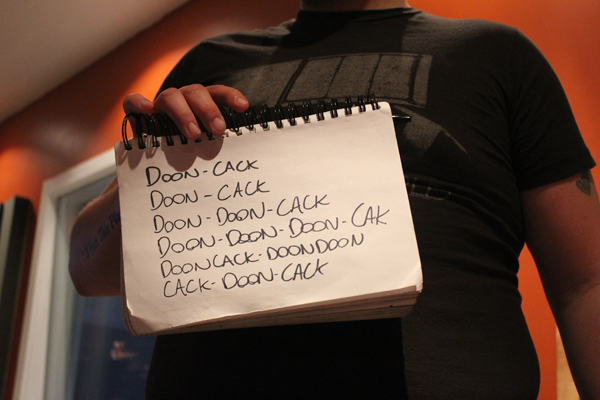 DOON-CACK
DOON-CACK
DOON-DOON-CACK
DOON-DOON-DOON-CAK
DOONCACK-DOONDOON
CACK-DOON-CACK